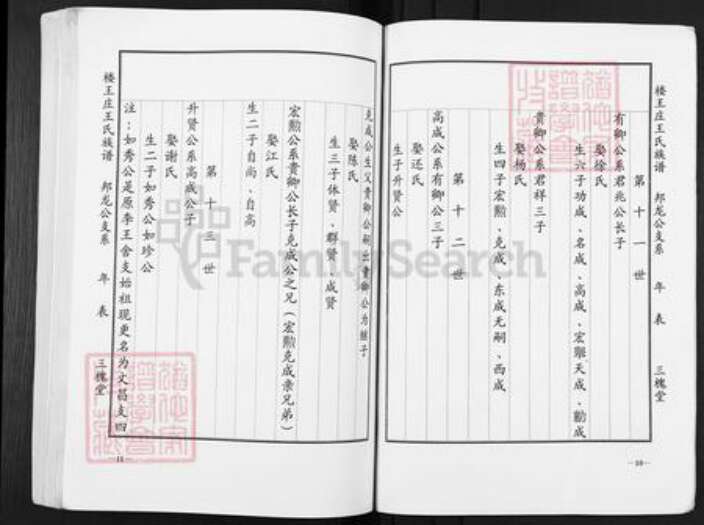 楼王庄王氏族谱 邦龙公支系 年表 三槐堂
第十一世
有卿公系君兆公长子
娶徐氏
生六子功成、名成、高成、宏 天成、勷成
贵卿公系君祥三子
娶杨氏
生四子宏勲、克成、东成无嗣、西成
第十二世
高成公系有卿公三子
娶还氏
生子升贤公
—10—
克成公生父贵卿公 出贵卿公为 子
娶陈氏
生三子体贤、群贤、成贤
宏勲公系贵卿公长子克成公之兄（宏勲克成亲兄弟）
娶江氏
生二子自尚、自高
第十三世
升贤公系高成公子
娶谢氏
生二子如秀公如珍公
注：如秀公是原李王舍支始祖现更名为文昌支四
楼王庄王氏族谱 邦龙公支系 年表 三槐堂
—11—
FamilySearch